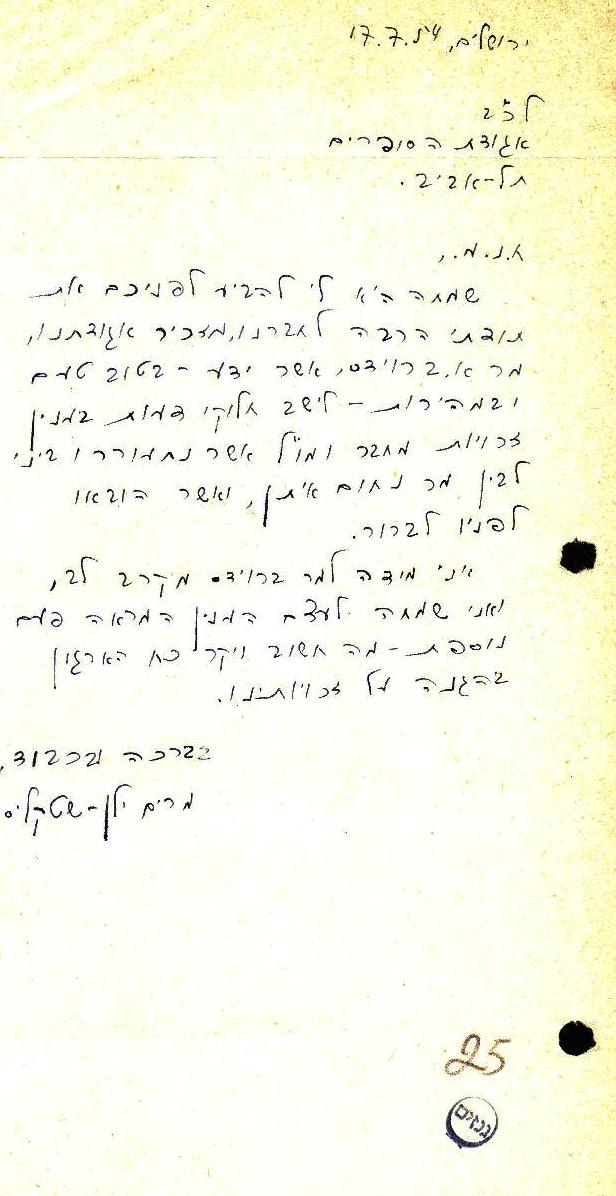 ירושלים, 17.7.54
לכב׳
אגודת הסופרים
תל-אביב.
א.נ.מ.,
שמחה היא לי להביע לפניכם את
תודתי הרבה לחברנו, מזכיר אגודתנו,
מר א. ברוידס, אשר ידע - בטוב טעם
ובמהירות - לישב חלוקי דעות בענין
זכויות מחבר ומו"ל אשר נתעוררו ביני
לבין מר נחום איתן, ואשר הובאו
לפניו לברור.
אני מודה למר ברוידס מקרב לב,
ואני שמחה לעצם הענין המראה פעם
נוספת - מה חשוב ויקר כח הארגון
בהגנה על זכויותינו.
בברכה ובכבוד,
מרים ילן-שטקליס
25
גנזים